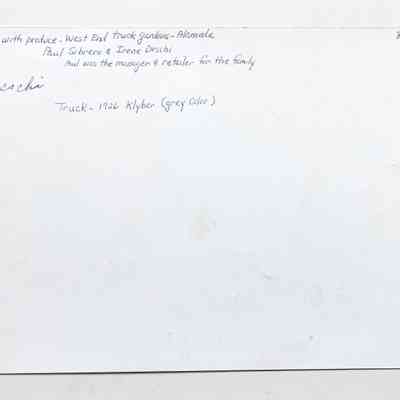 with produce - West End truck gardens - Alameda
Paul Sibrero & Irene Deschi
Paul was the manager & retailer for the family
Truck - 1926 Klyber (grey Color)